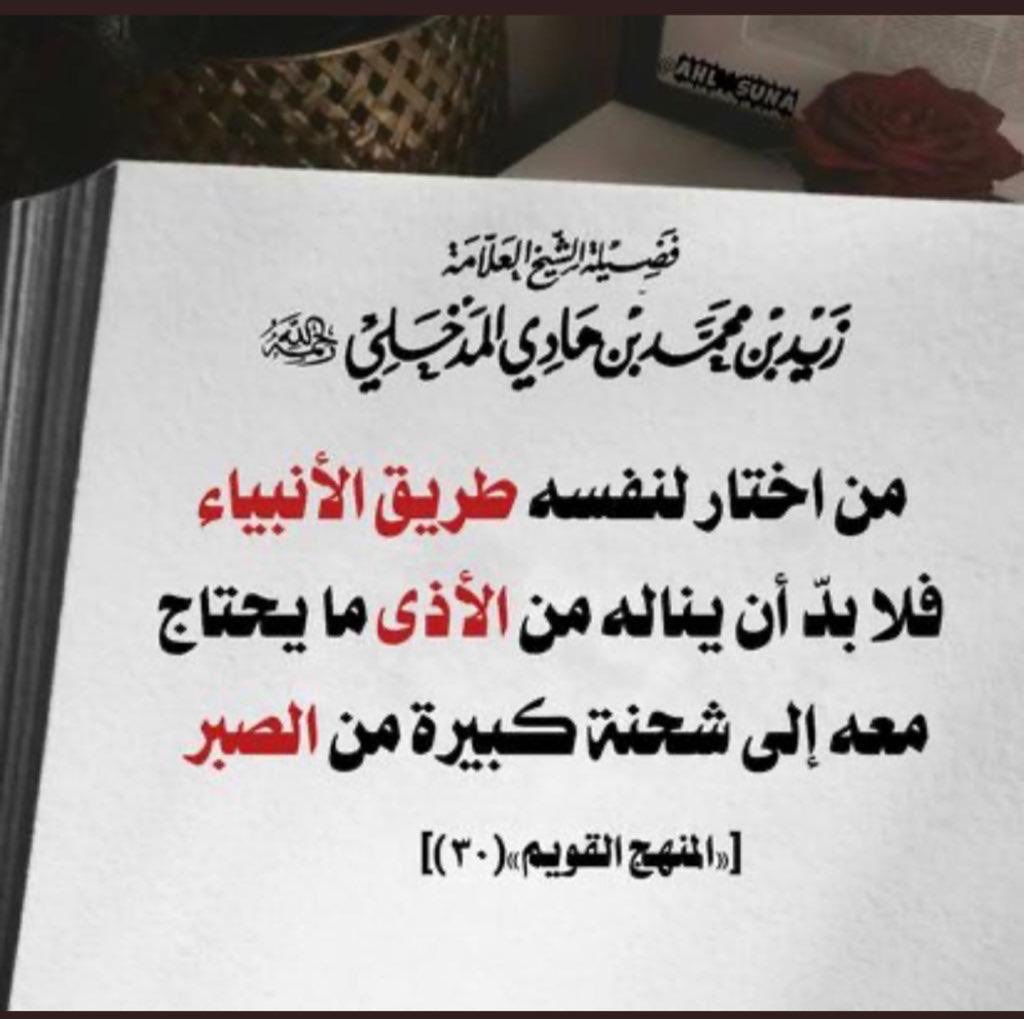 AHL SUNA
فَضِيلة الشّيخ العَلّامَة
زَيْد بْن مُحمَّد بْن هَادِي المَدْخَلِيْ رحمه الله
من اختار لنفسه طريق الأنبياء
فلا بدّ أن يناله من الأذى ما يحتاج
معه إلى شحنة كبيرة من الصبر
[«المنهج القويم»(٣٠)]